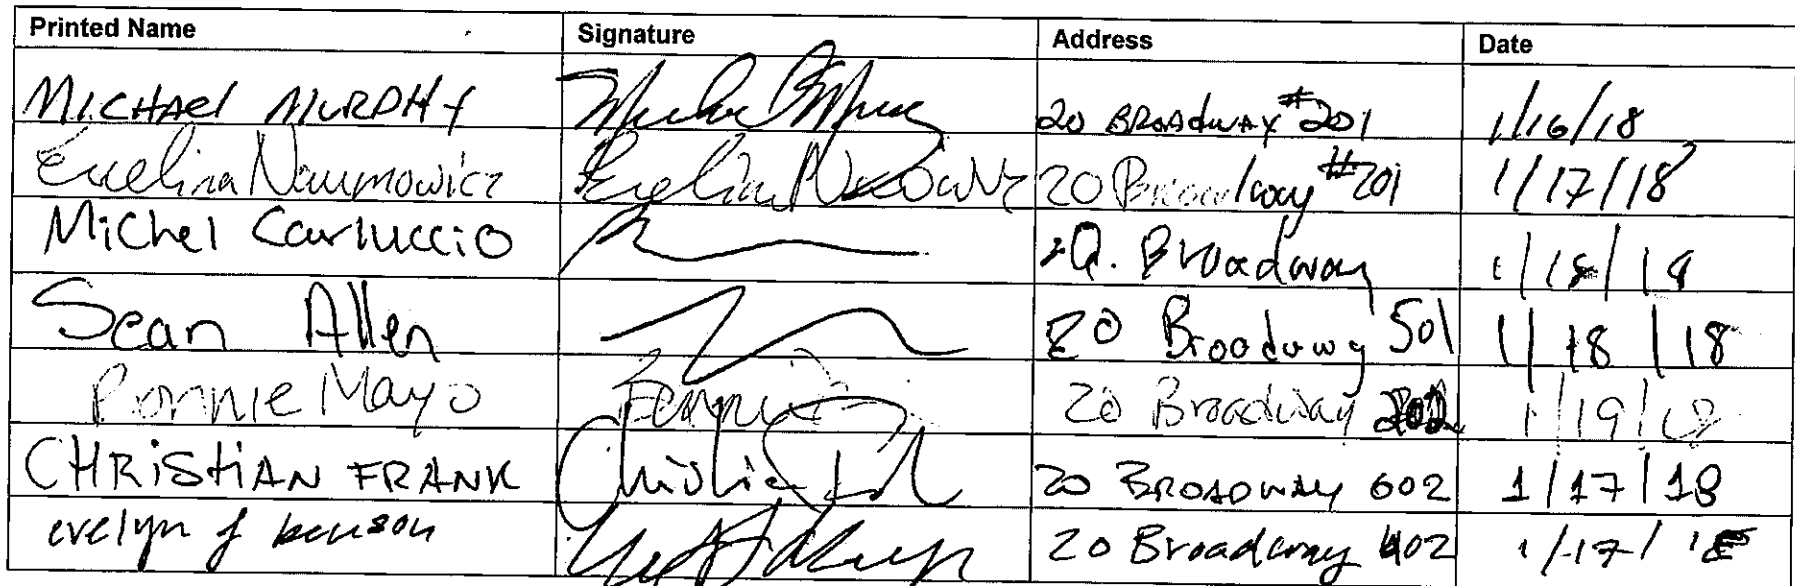 Printed Name Signature Address Date
MICHAEL MURPHY 20 BROADWAY #201 1/16/18
Evelina Naumowicz Evelina 20 Broadway #201 1/17/18
Michel Carluccio 20. Broadway 1/18/18
Sean Allen 20 Broadway 501 1/18/18
Ronnie Mayo 20 Broadway 1/19/18
CHRISTIAN FRANK 20 BROADWAY 602 1/17/18
evelyn j benson 20 Broadway 402 1/17/18